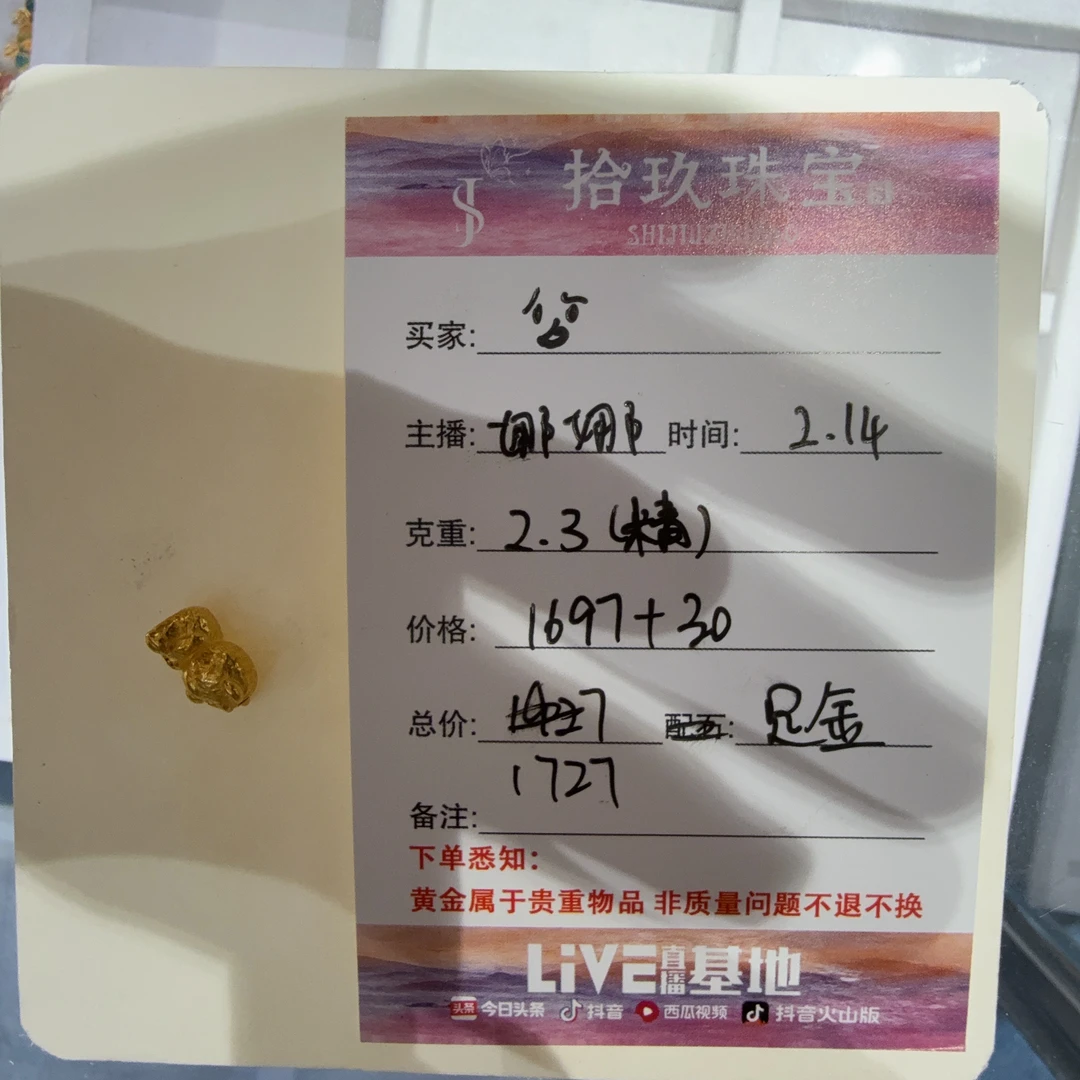 SJ
拾玖珠宝
SHIJIUZHUBAO
买家:
主播: 娜娜 时间: 2.14
克重: 2.3 (精)
价格: 1697+30
总价: 配石: 足金
1727
备注:
下单悉知:
黄金属于贵重物品 非质量问题不退不换
LiVE直播基地
头条 今日头条 抖音 西瓜视频 抖音火山版